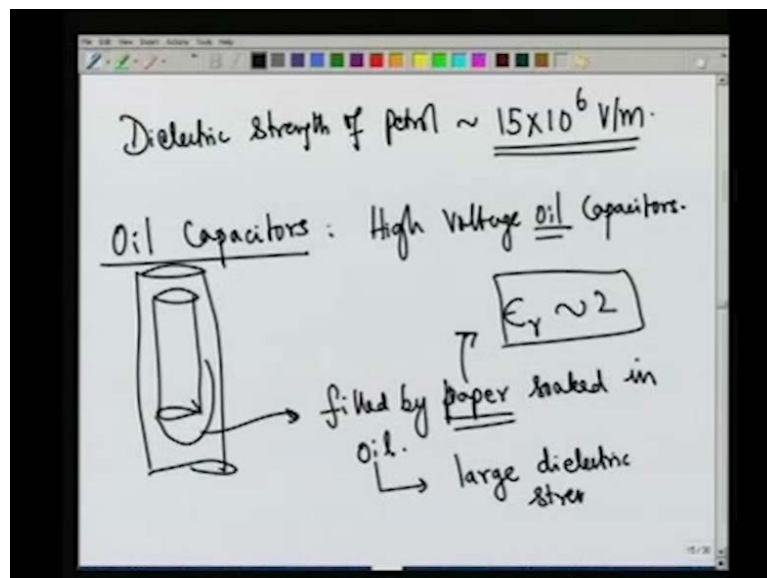 Dielectric Strength of petrol ~ 15x10⁶ V/m.
Oil Capacitors : High Voltage oil Capacitors.
εᵣ ~ 2
filled by paper soaked in
oil.
large dielectric
stren